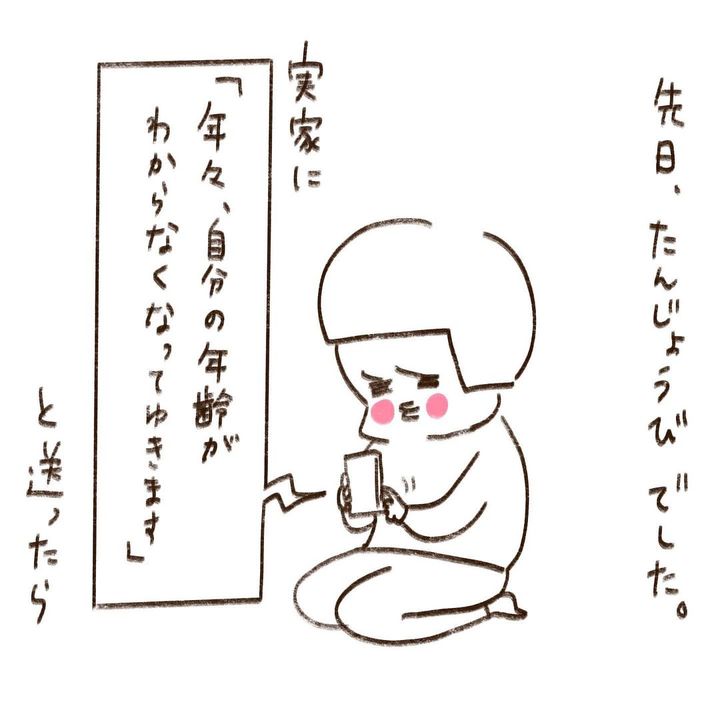 先日、たんじょうびでした。
実家に
「年々、自分の年齢が
わからなくなってゆきます」
と送ったら